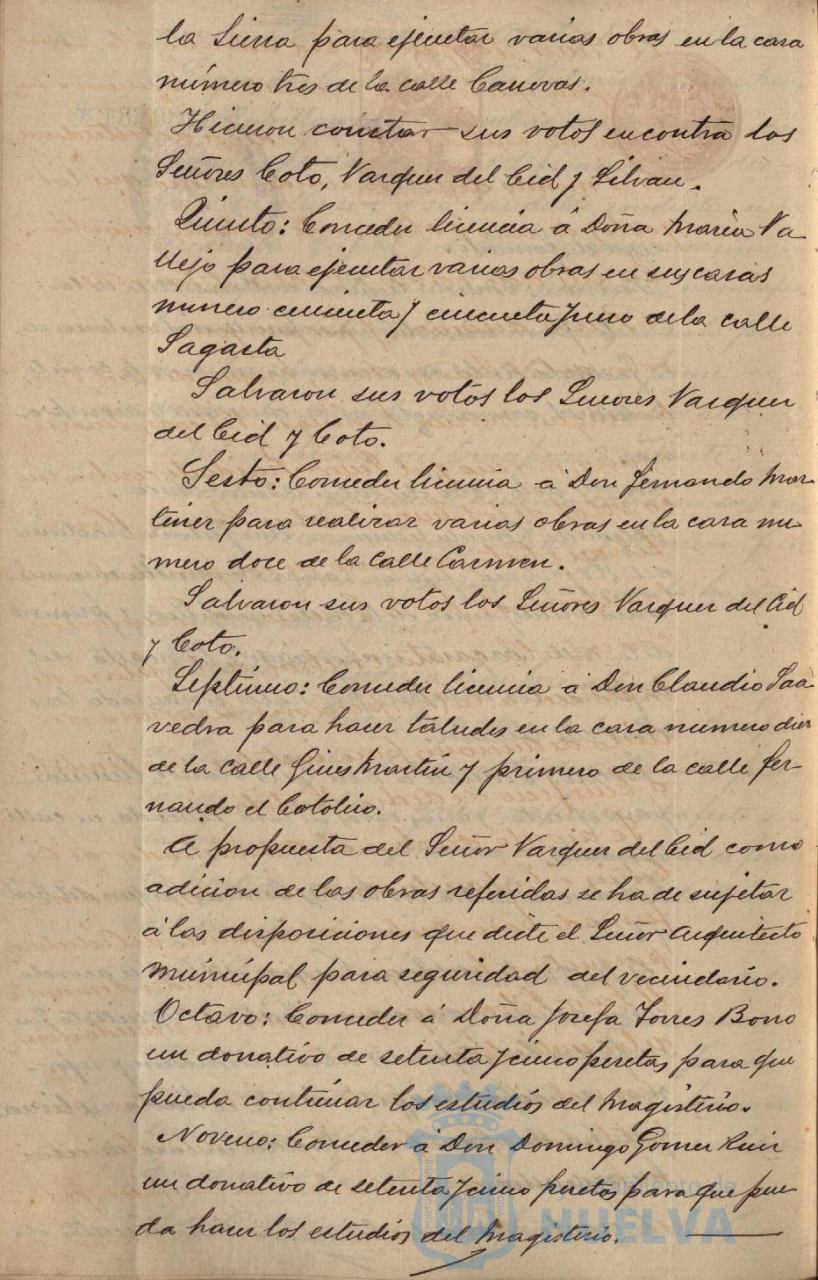 la Sierra para ejecutar varias obras en la casa
número tres de la calle Canovas.
Hicieron constar sus votos en contra los
Señores Coto, Vazquez del Cid y Silvan.
Quinto: Conceder licencia á Doña Maria Va
llejo para ejecutar varias obras en sus casas
numero cincuenta y cincuenta y uno de la calle
Sagasta
Salvaron sus votos los Señores Vazquez
del Cid y Coto.
Sesto: Conceder licencia á Don Fernando Mar-
tinez para realizar varias obras en la casa nu-
mero doce de la calle Carmen.
Salvaron sus votos los Señores Vazquez del Cid
y Coto.
Septimo: Conceder licencia á Don Claudio Saa-
vedra para hacer taludes en la casa numero diez
de la calle Gines Martin y primero de la calle Fer-
nando el Catolico.
A propuesta del Señor Vazquez del Cid como
adicion de las obras referidas se ha de sujetar
á las disposiciones que dicte el Señor Arquitecto
Municipal para seguridad del vecindario.
Octavo: Conceder á Doña Josefa Torres Bono
un donativo de setenta y cinco pesetas para que
pueda continuar los estudios del Magisterio.
Noveno: Conceder á Don Domingo Gomez Ruiz
un donativo de setenta y cinco pesetas para que pue-
da hacer los estudios del Magisterio.
HUELVA